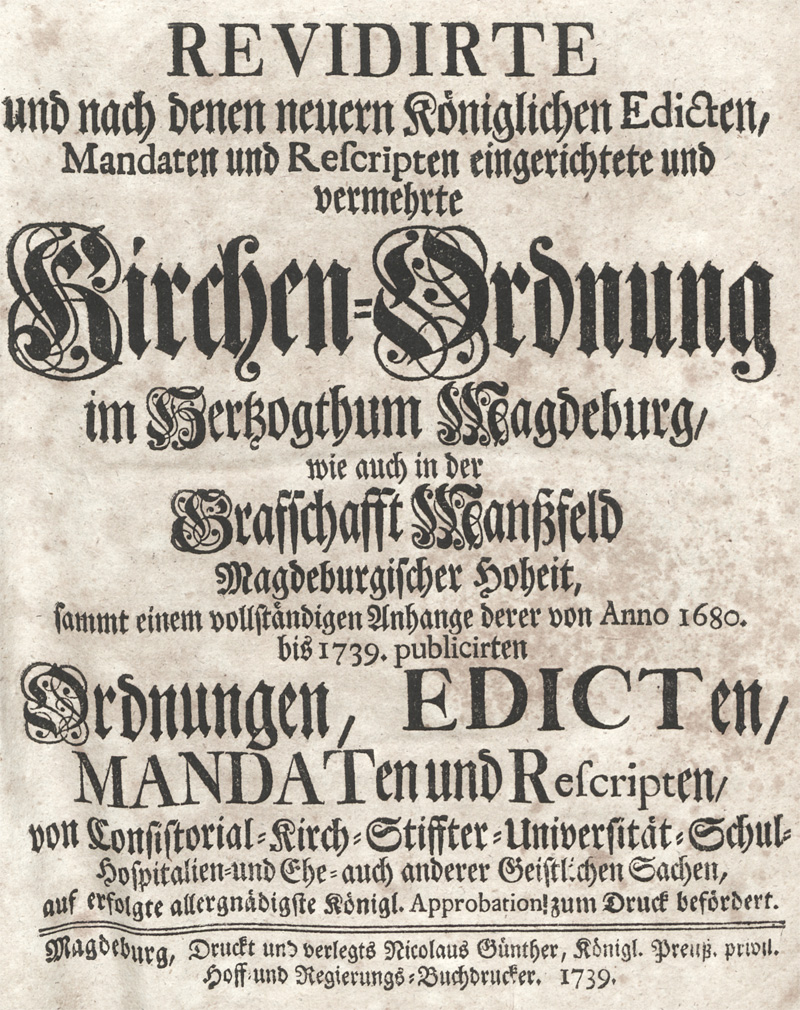 REVIDIRTE
und nach denen neuern Königlichen Edicten,
Mandaten und Reſcripten eingerichtete und
vermehrte
Kirchen=Ordnung
im Hertzogthum Magdeburg/
wie auch in der
Grafſchafft Manßfeld
Magdeburgiſcher Hoheit,
ſammt einem vollſtändigen Anhange derer von Anno 1680.
biß 1739. publicirten
Ordnungen, EDICTen/
MANDATen und Reſcripten/
von Conſiſtorial=Kirch=Stiffter=Univerſität=Schul=
Hoſpitalien=und Ehe=auch anderer Geiſtlichen Sachen,
auf erfolgte allergnädigſte Königl. Approbation! zum Druck befördert.
Magdeburg, Druckt und verlegts Nicolaus Günther, Königl. Preuß. privil.
Hoff=und Regierungs=Buchdrucker. 1739.